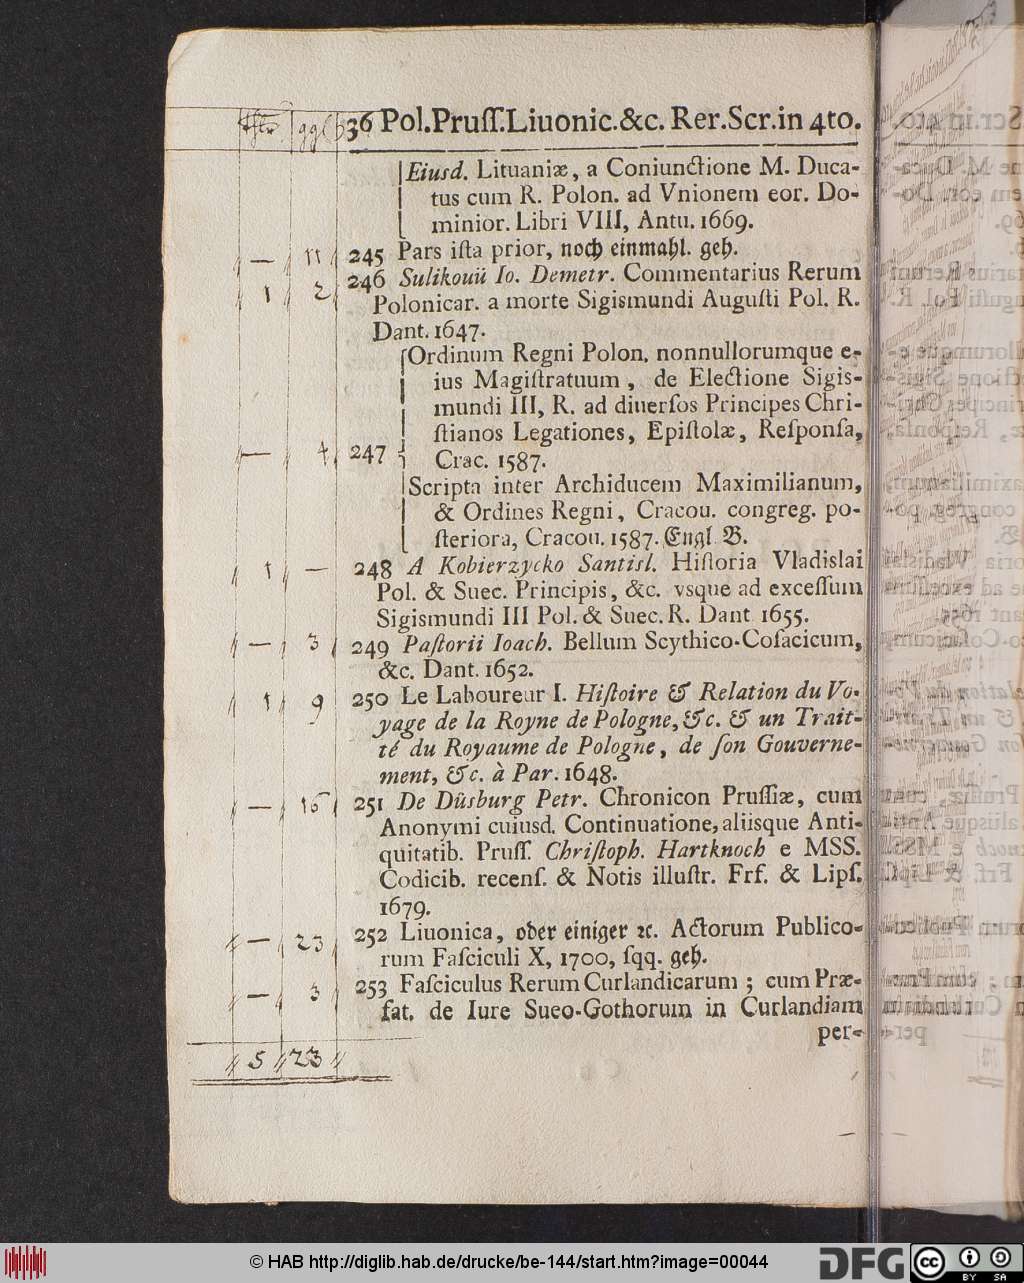 36 Pol.Pruſſ.Liuonic.&c. Rer.Scr.in 4to.
Eiusd. Lituaniæ, a Coniunctione M. Duca-
tus cum R. Polon. ad Vnionem eor. Do-
minior. Libri VIII, Antu. 1669.
— 11 245 Pars iſta prior, noch einmahl. geh.
1 2 246 Sulikouii Io. Demetr. Commentarius Rerum
Polonicar. a morte Sigismundi Auguſti Pol. R.
Dant. 1647.
Ordinum Regni Polon. nonnullorumque e-
ius Magiſtratuum, de Electione Sigis-
mundi III, R. ad diuerſos Principes Chri-
ſtianos Legationes, Epiſtolæ, Reſponſa,
— 4 247 Crac. 1587.
Scripta inter Archiducem Maximilianum,
& Ordines Regni, Cracou. congreg. po-
ſteriora, Cracou. 1587. Engl. B.
1 — 248 A Kobierzycko Santisl. Hiſtoria Vladislai
Pol. & Suec. Principis, &c. vsque ad exceſſum
Sigismundi III Pol. & Suec. R. Dant 1655.
— 3 249 Paſtorii Ioach. Bellum Scythico-Coſacicum,
&c. Dant. 1652.
1 9 250 Le Laboureur I. Hiſtoire & Relation du Vo-
yage de la Royne de Pologne, &c. & un Trait-
té du Royaume de Pologne, de ſon Gouverne-
ment, &c. à Par. 1648.
— 15 251 De Düsburg Petr. Chronicon Pruſſiæ, cum
Anonymi cuiusd. Continuatione, aliisque Anti-
quitatib. Pruſſ. Chriſtoph. Hartknoch e MSS.
Codicib. recenſ. & Notis illuſtr. Frf. & Lipſ.
1679.
— 23 252 Liuonica, oder einiger ꝛc. Actorum Publico-
rum Faſciculi X, 1700, ſqq. geh.
— 3 253 Faſciculus Rerum Curlandicarum; cum Præ-
fat. de Iure Sueo-Gothorum in Curlandiam
per-
5 23
© HAB http://diglib.hab.de/drucke/be-144/start.htm?image=00044
DFG
cc BY SA